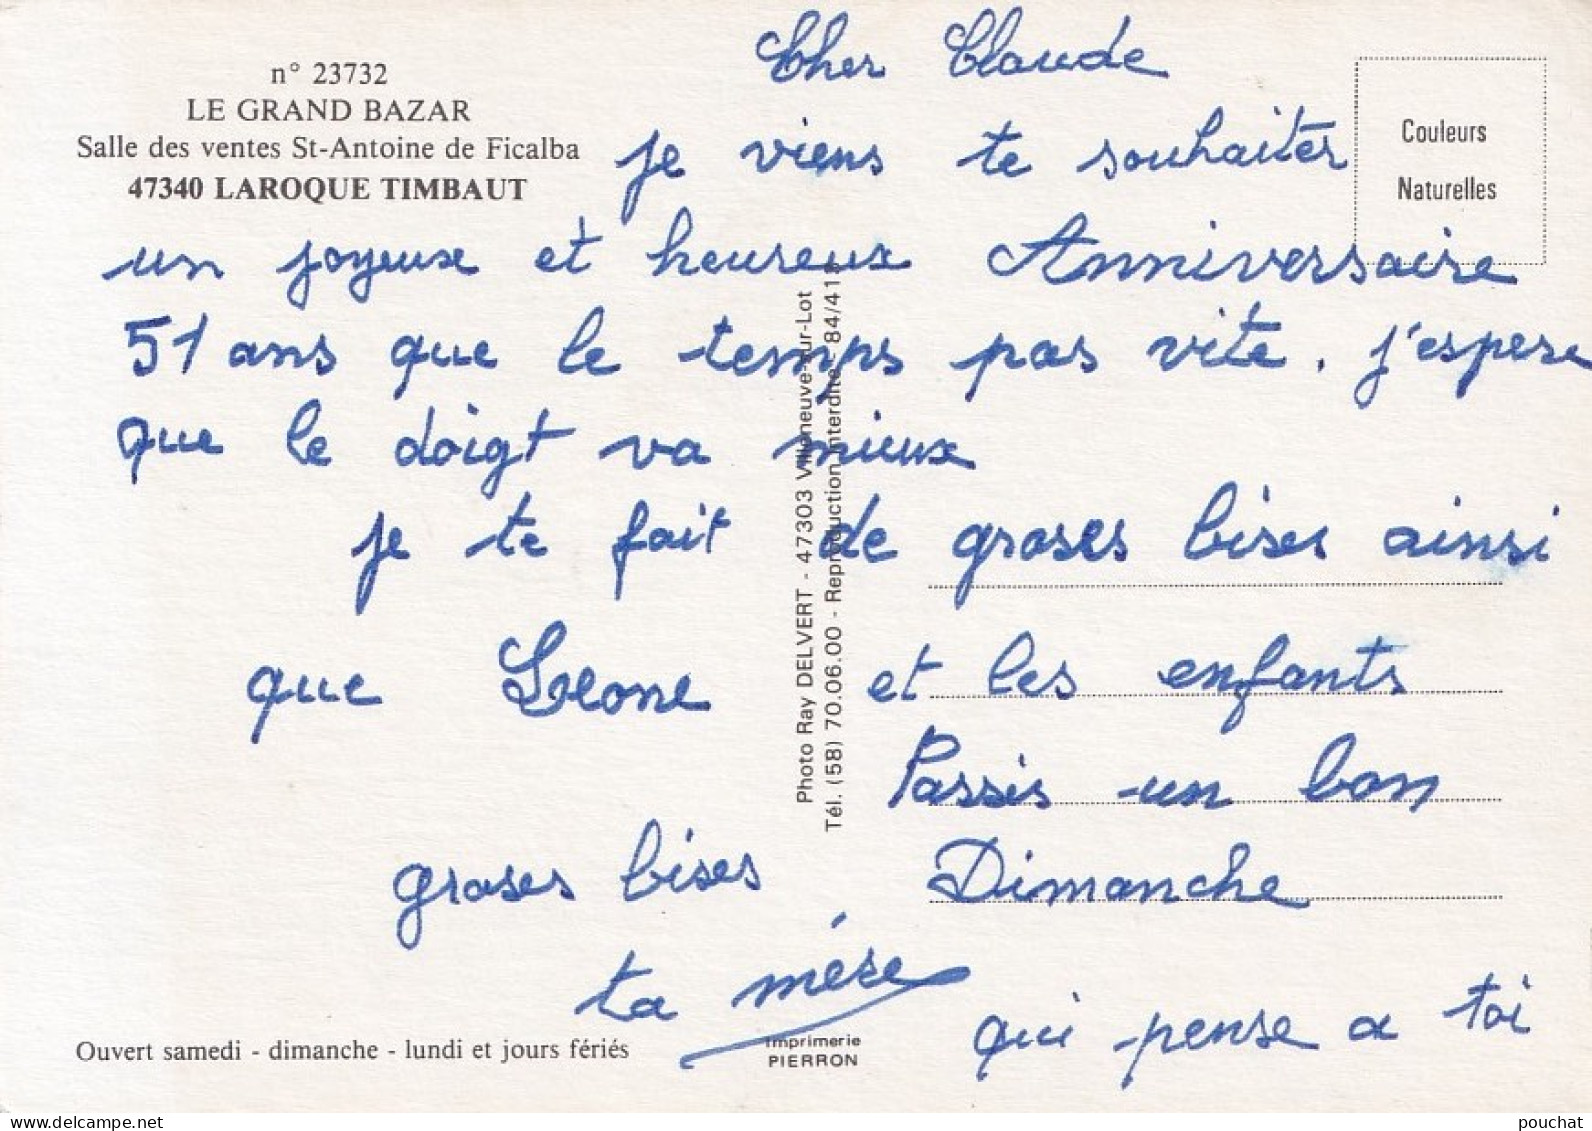 n° 23732
LE GRAND BAZAR
Salle des ventes St-Antoine de Ficalba
47340 LAROQUE TIMBAUT
Couleurs
Naturelles
Cher Claude
je viens te souhaiter
un joyeux et heureux Anniversaire
51 ans que le temps pas vite. j'espere
que le doigt va mieux
je te fait de groses bises ainsi
que et les enfants
Passis un bon
groses bises Dimanche
ta mére
qui pense a toi
Photo Ray DELVERT - 47303 Villeneuve-sur-Lot
Tél. (58) 70.06.00 - Reproduction interdite - 84/41
Ouvert samedi - dimanche - lundi et jours fériés
Imprimerie
PIERRON
www.delcampe.net
pouchat